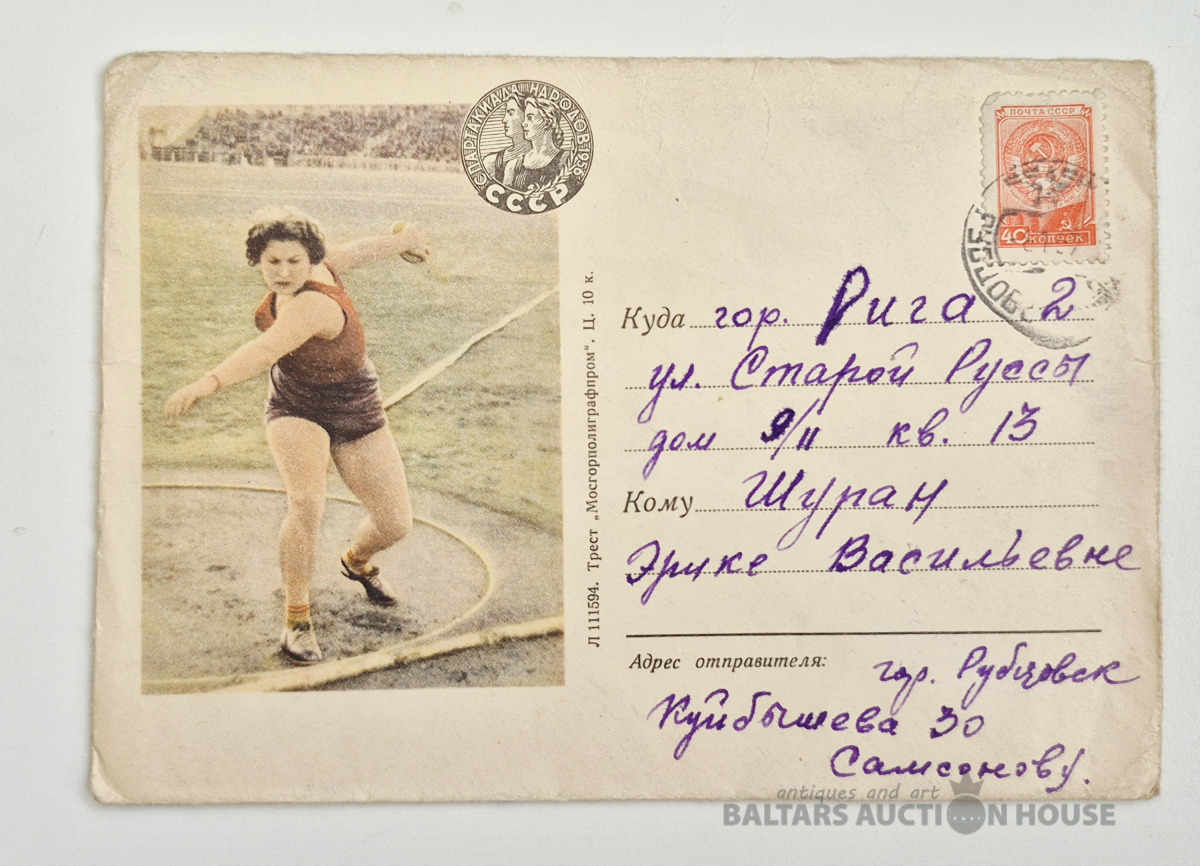 СПАРТАКИАДА НАРОДОВ 1956
СССР
ПОЧТА СССР
40 КОПЕЕК
Куда гор. Рига 2
ул. Старой Руссы
дом 9/11 кв. 13
Кому Шуран
Эрике Васильевне
Адрес отправителя:
гор. Рубцовск
Куйбышева 30
Самсонову.
Л 111594. Трест „Мосгорполиграфпром“. Ц. 10 к.
antiques and art
BALTARS AUCTION HOUSE